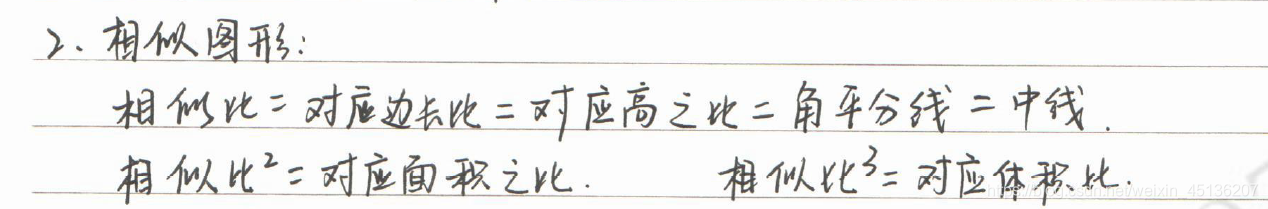 2. 相似图形:
相似比=对应边长比=对应高之比=角平分线=中线.
相似比²=对应面积之比. 相似比³=对应体积比.
https://blog.csdn.net/weixin_45136207